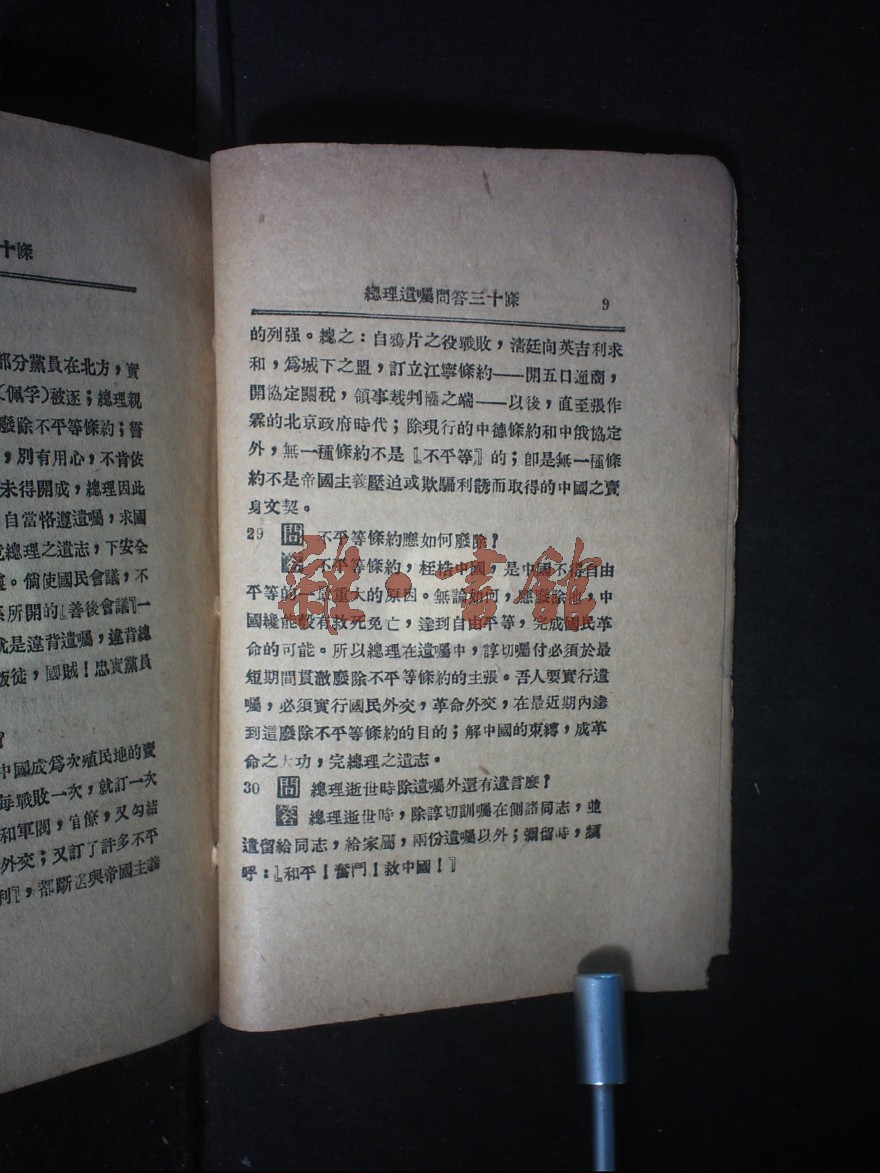 十條
部分黨員在北方，實
（佩孚）被逐；總理親
廢除不平等條約；嘗
，別有用心，不肯依
未得開成，總理因此
自當恪遵遺囑，求國
總理之遺志，下安全
。倘使國民會議，不
所開的『善後會議』一
就是違背遺囑，違背總
叛徒，國賊！忠實黨員
？
中國成爲次殖民地的賣
每戰敗一次，就訂一次
和軍閥，官僚，又勾結
外交；又訂了許多不平
利』，都斷送與帝國主義
總理遺囑問答三十條 9
的列强。總之：自鴉片之役戰敗，清廷向英吉利求
和，爲城下之盟，訂立江寧條約——開五口通商，
開協定關稅，領事裁判權之端——以後，直至張作
霖的北京政府時代；除現行的中德條約和中俄協定
外，無一種條約不是『不平等』的；卽是無一種條
約不是帝國主義壓迫或欺騙利誘而取得的中國之賣
身文契。
29 問 不平等條約應如何廢除？
答 不平等條約，桎梏中國，是中國不得自由
平等的一章重大的原因。無論如何，應廢除他，中
國纔能彀有救死免亡，達到自由平等，完成國民革
命的可能。所以總理在遺囑中，諄切囑付必須於最
短期間貫澈廢除不平等條約的主張。吾人要實行遺
囑，必須實行國民外交，革命外交，在最近期內達
到這廢除不平等條約的目的；解中國的束縛，成革
命之大功，完總理之遺志。
30 問 總理逝世時除遺囑外還有遺言麼？
答 總理逝世時，除諄切訓囑在側諸同志，並
遺留給同志，給家屬，兩份遺囑以外；彌留時，頻
呼：『和平！奮鬥！救中國！』
雜·書館